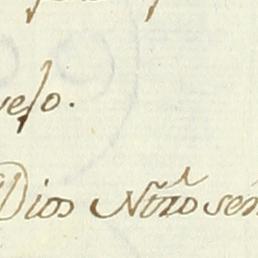 veso.
Dios Ntrô señ